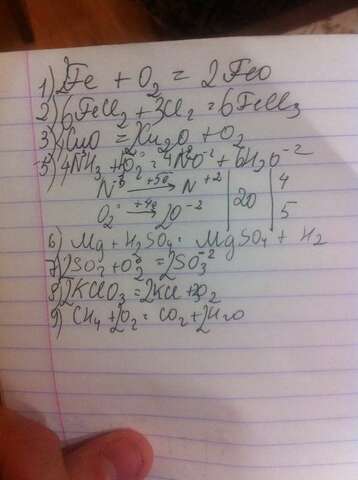 1) 2Fe + O2 = 2FeO
2) 6FeCl2 + 3Cl2 = 6FeCl3
3) 4CuO = 2Cu2O + O2
5) 4NH3 + 5O2 = 4NO + 6H2O
N-3 +5e → N+2 | 20 | 4
O2 +4e → 2O-2 | 5
6) Mg + H2SO4 = MgSO4 + H2
7) 2SO2 + O2 = 2SO3-2
8) 2KClO3 = 2KCl + 3O2
9) CH4 + 2O2 = CO2 + 2H2O